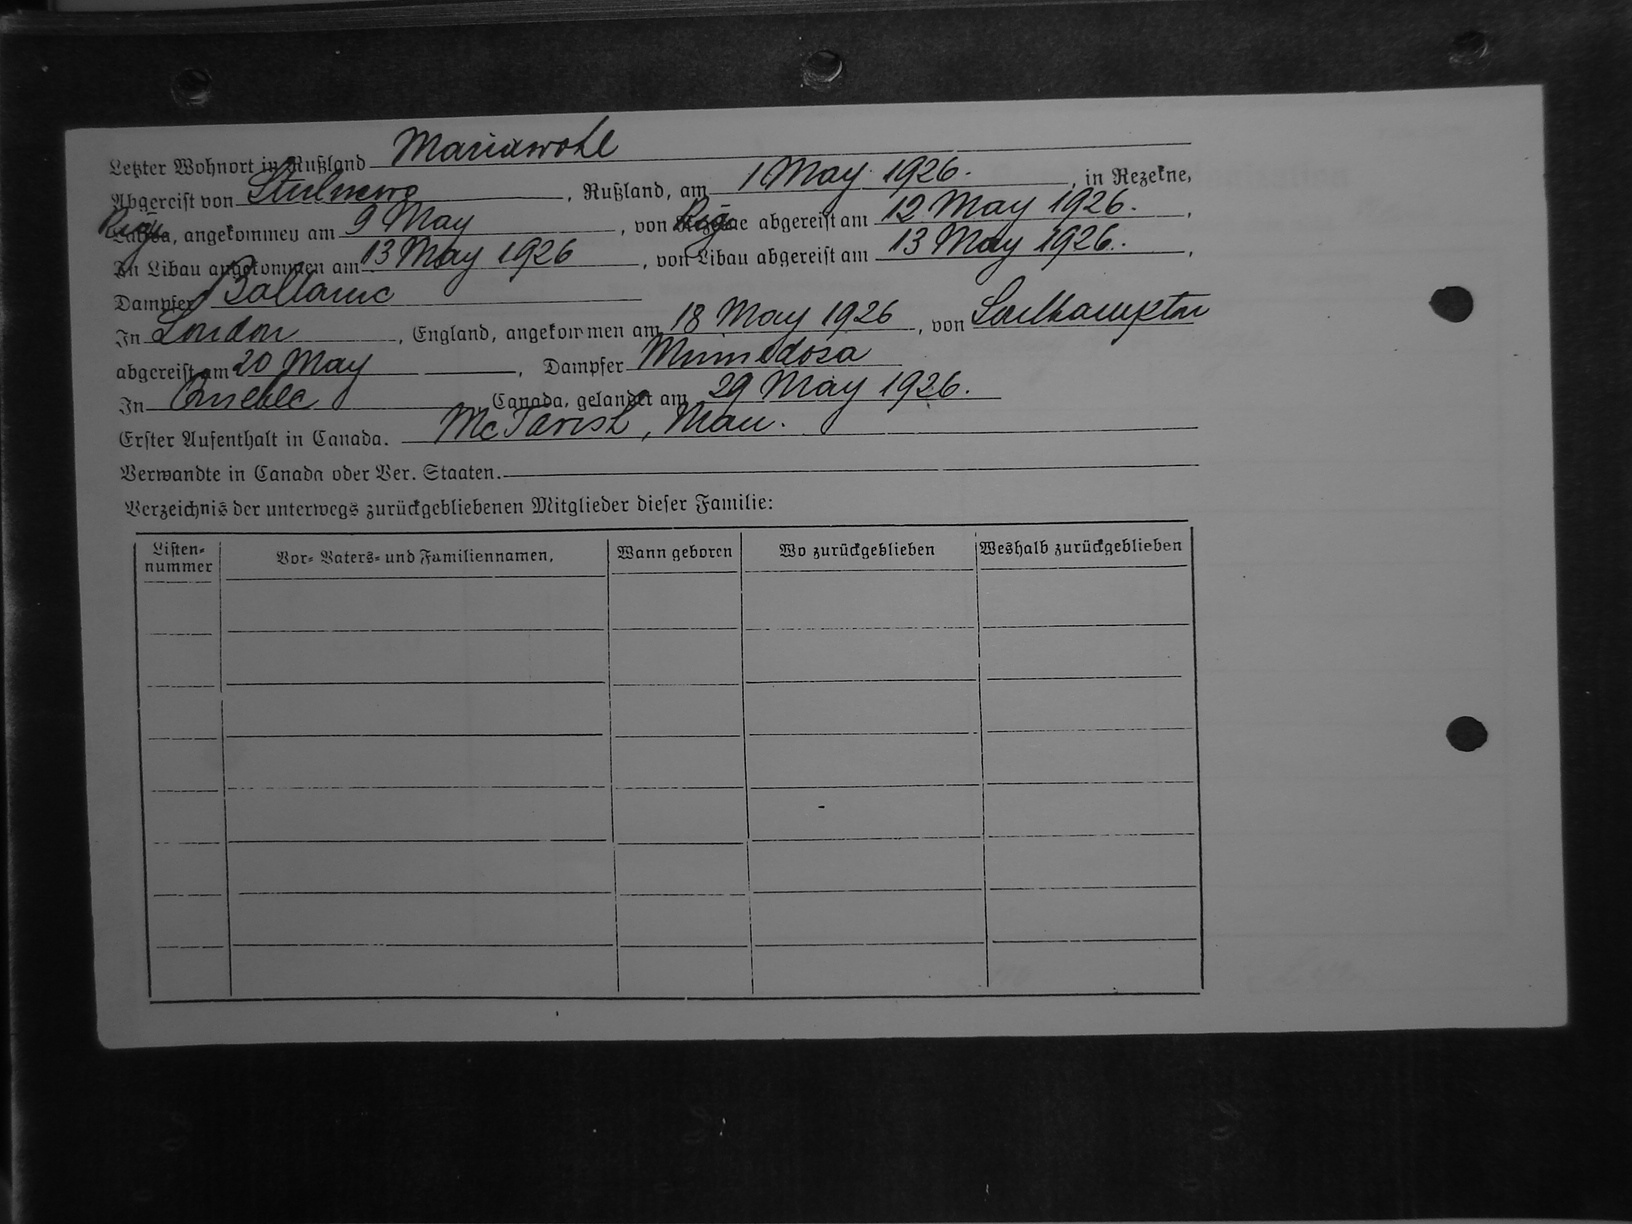 Letzter Wohnort in Rußland Mariawohl
Abgereist von Stulnewo, Rußland, am 1 May 1926., in Rezekne,
Riga, angekommen am 9 May, von Riga abgereist am 12 May 1926.,
In Libau angekommen am 13 May 1926, von Libau abgereist am 13 May 1926.,
Dampfer Baltanic
In London, England, angekommen am 18 May 1926, von Southampton
abgereist am 20 May, Dampfer Minnedosa
In Quebec Canada, gelandet am 29 May 1926.
Erster Aufenthalt in Canada. McTavish, Man.
Verwandte in Canada oder Ver. Staaten.
Verzeichnis der unterwegs zurückgebliebenen Mitglieder dieser Familie:
Listen-nummer Vor- Vaters- und Familiennamen, Wann geboren Wo zurückgeblieben Weshalb zurückgeblieben